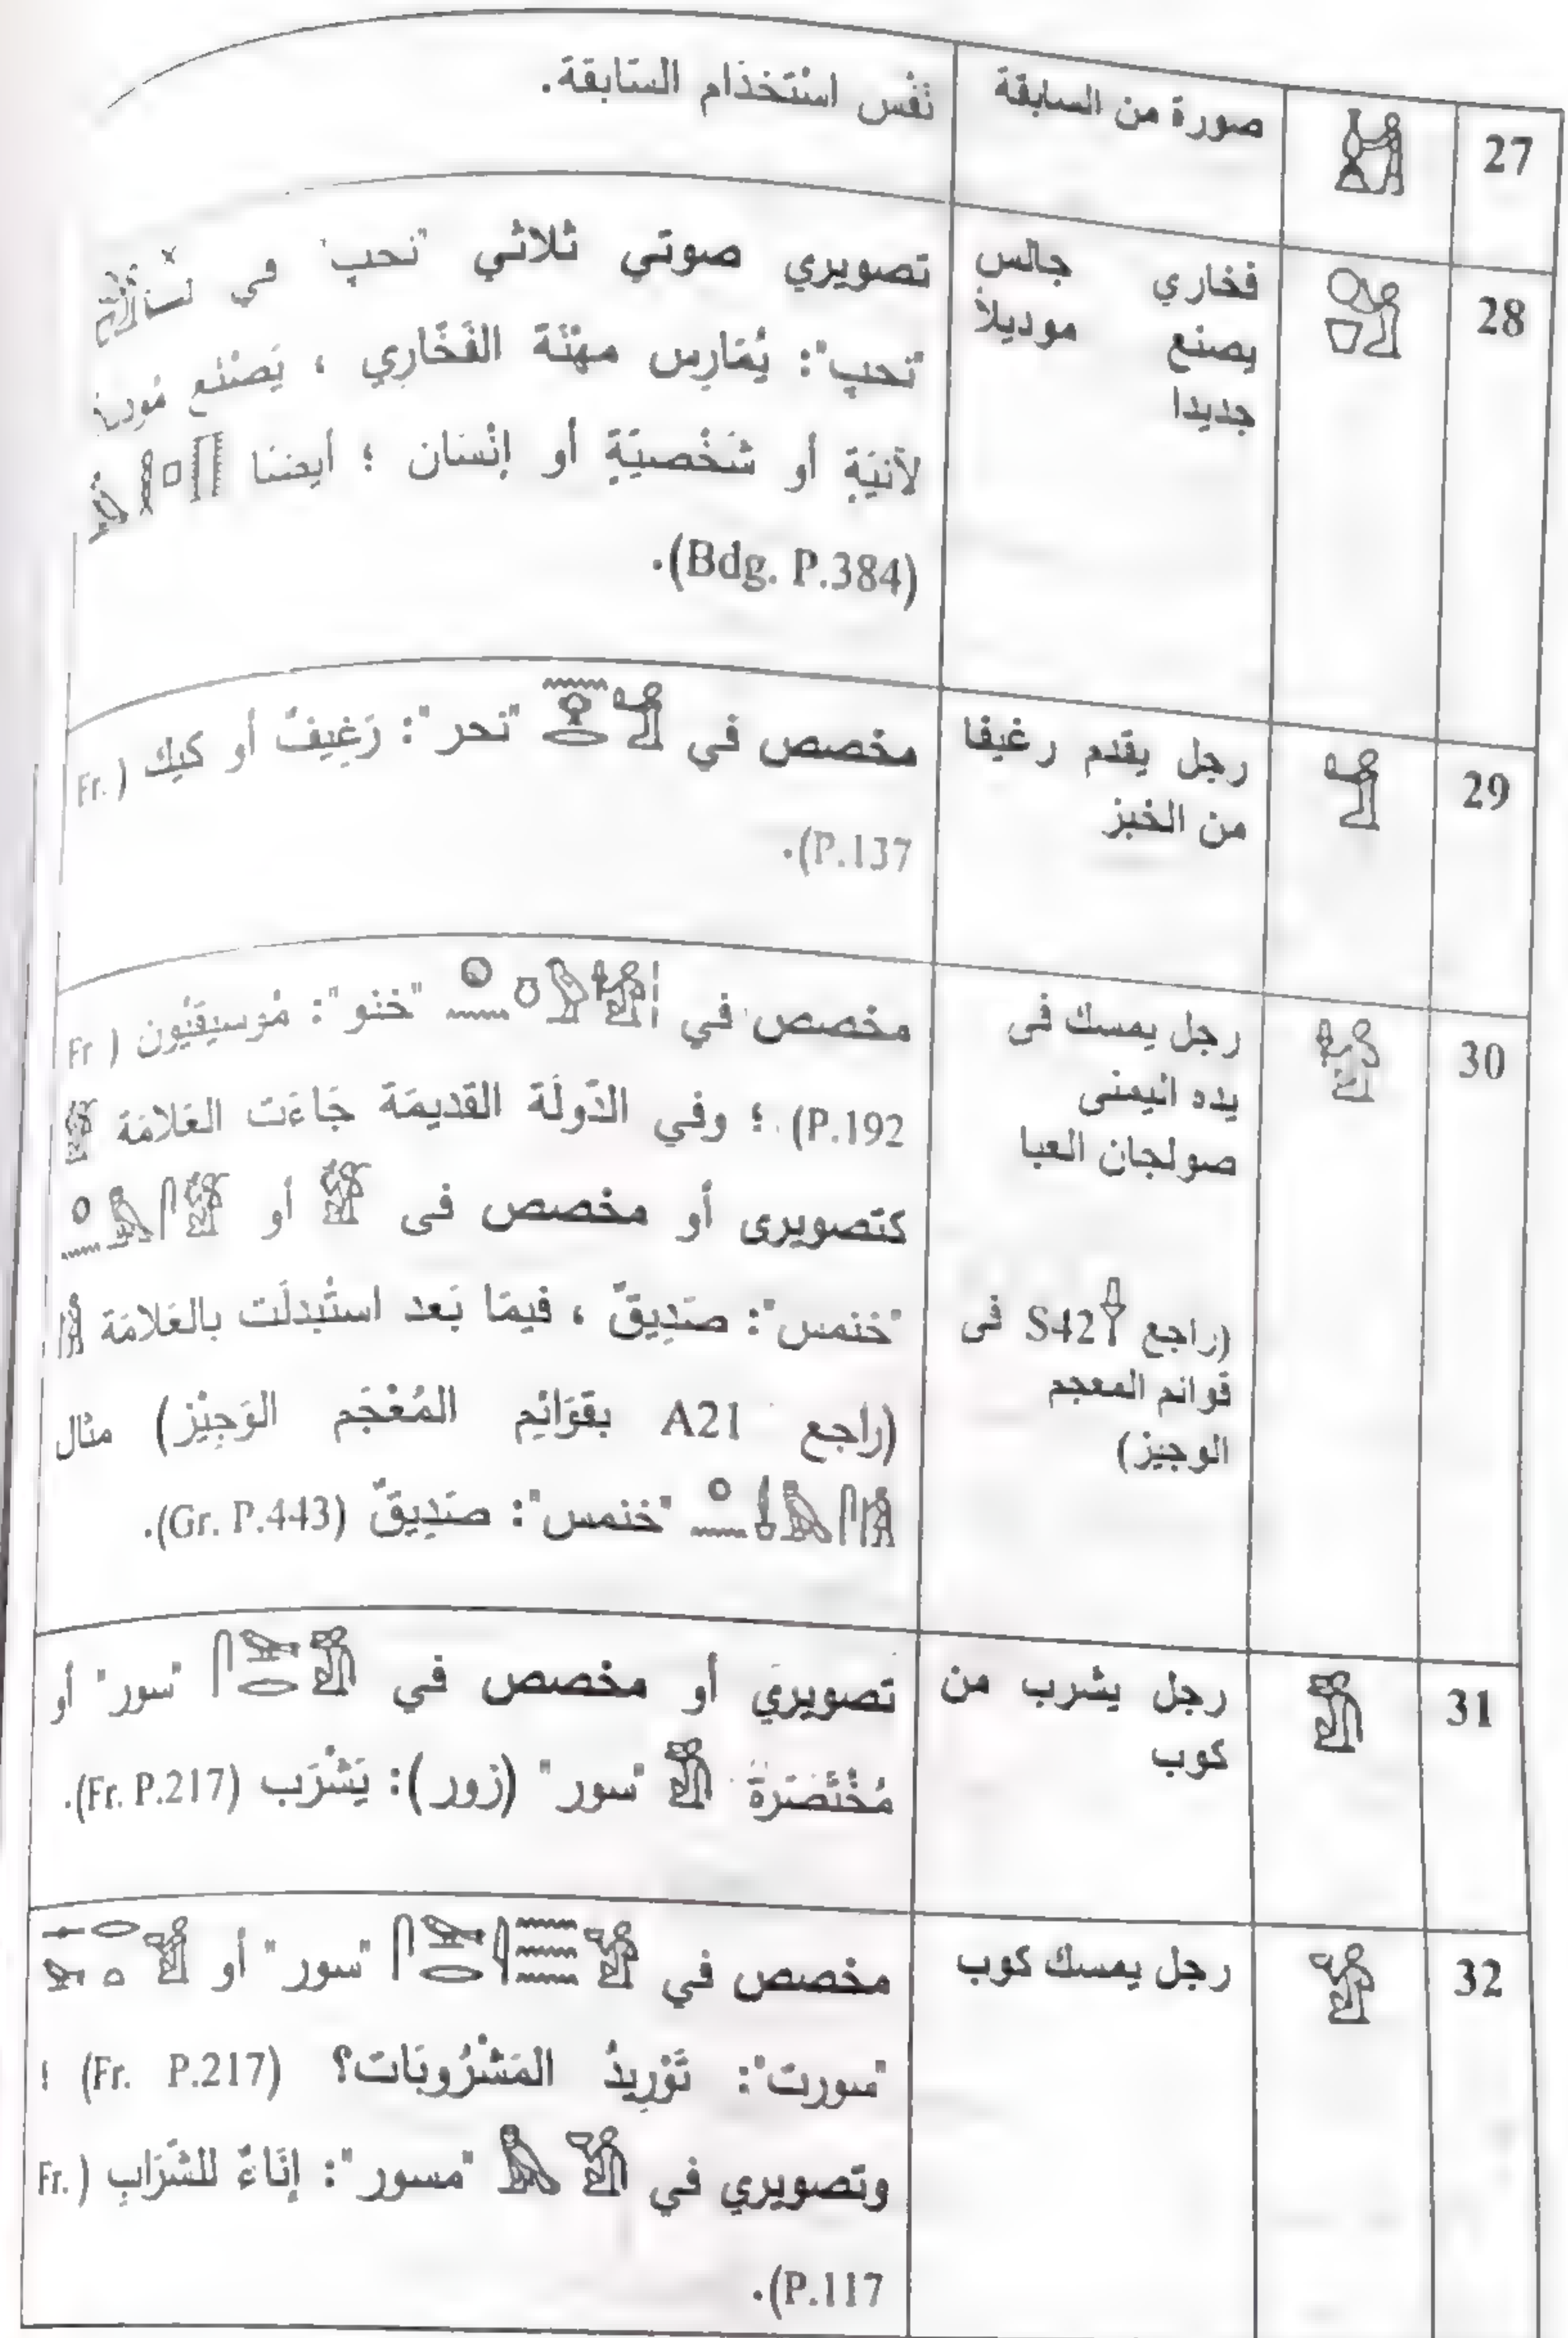 27
صورة من السابقة
نَفْس اسْتَخدَام السَّابقَة.
28
فخاري جالس
يصنع موديلاً
جديدا
تصويري صوتي ثلاثي "نحب" في
"نحب": يُمَارِس مهْنَة الفَخَّارِي ، يَصْنَع
لآنيَةٍ أو شَخْصيَّةٍ أو إنْسَان ؛ أيضنا
(Bdg. P.384).
29
رجل يقدم رغيفا
من الخبز
مخصص في "نحر": رَغِيفٌ أو كيك (Fr.
P.137).
30
رجل يمسك فى
يده اليمنى
صولجان العبا
(راجع S42 فى
قوائم المعجم
الوجيز)
مخصص في "خنو": مُوسيقيُون (Fr
P.192) ؛ وفي الدَّولَة القَديمَة جَاءَت العَلامَة
كتصويرى أو مخصص فى أو
"خنمس": صَدِيقٌ ، فيمَا بَعد استُبدلَت بالعَلامَة
(راجع A21 بقَوَائِم المُعْجَم الوَجِيْز) مثال
"خنمس": صَدِيقٌ (Gr. P.443).
31
رجل يشرب من
كوب
تصويري أو مخصص في "سور" أو
مُخْتَصَرَة "سور" (زور): يَشْرَب (Fr. P.217).
32
رجل يمسك كوب
مخصص في "سور" أو
"سورت": تَوْرِيدُ المَشْرُوبَات؟ (Fr. P.217) ؛
وتصويري في "مسور": إنَاءٌ للشَّرَابِ (Fr.
P.117).